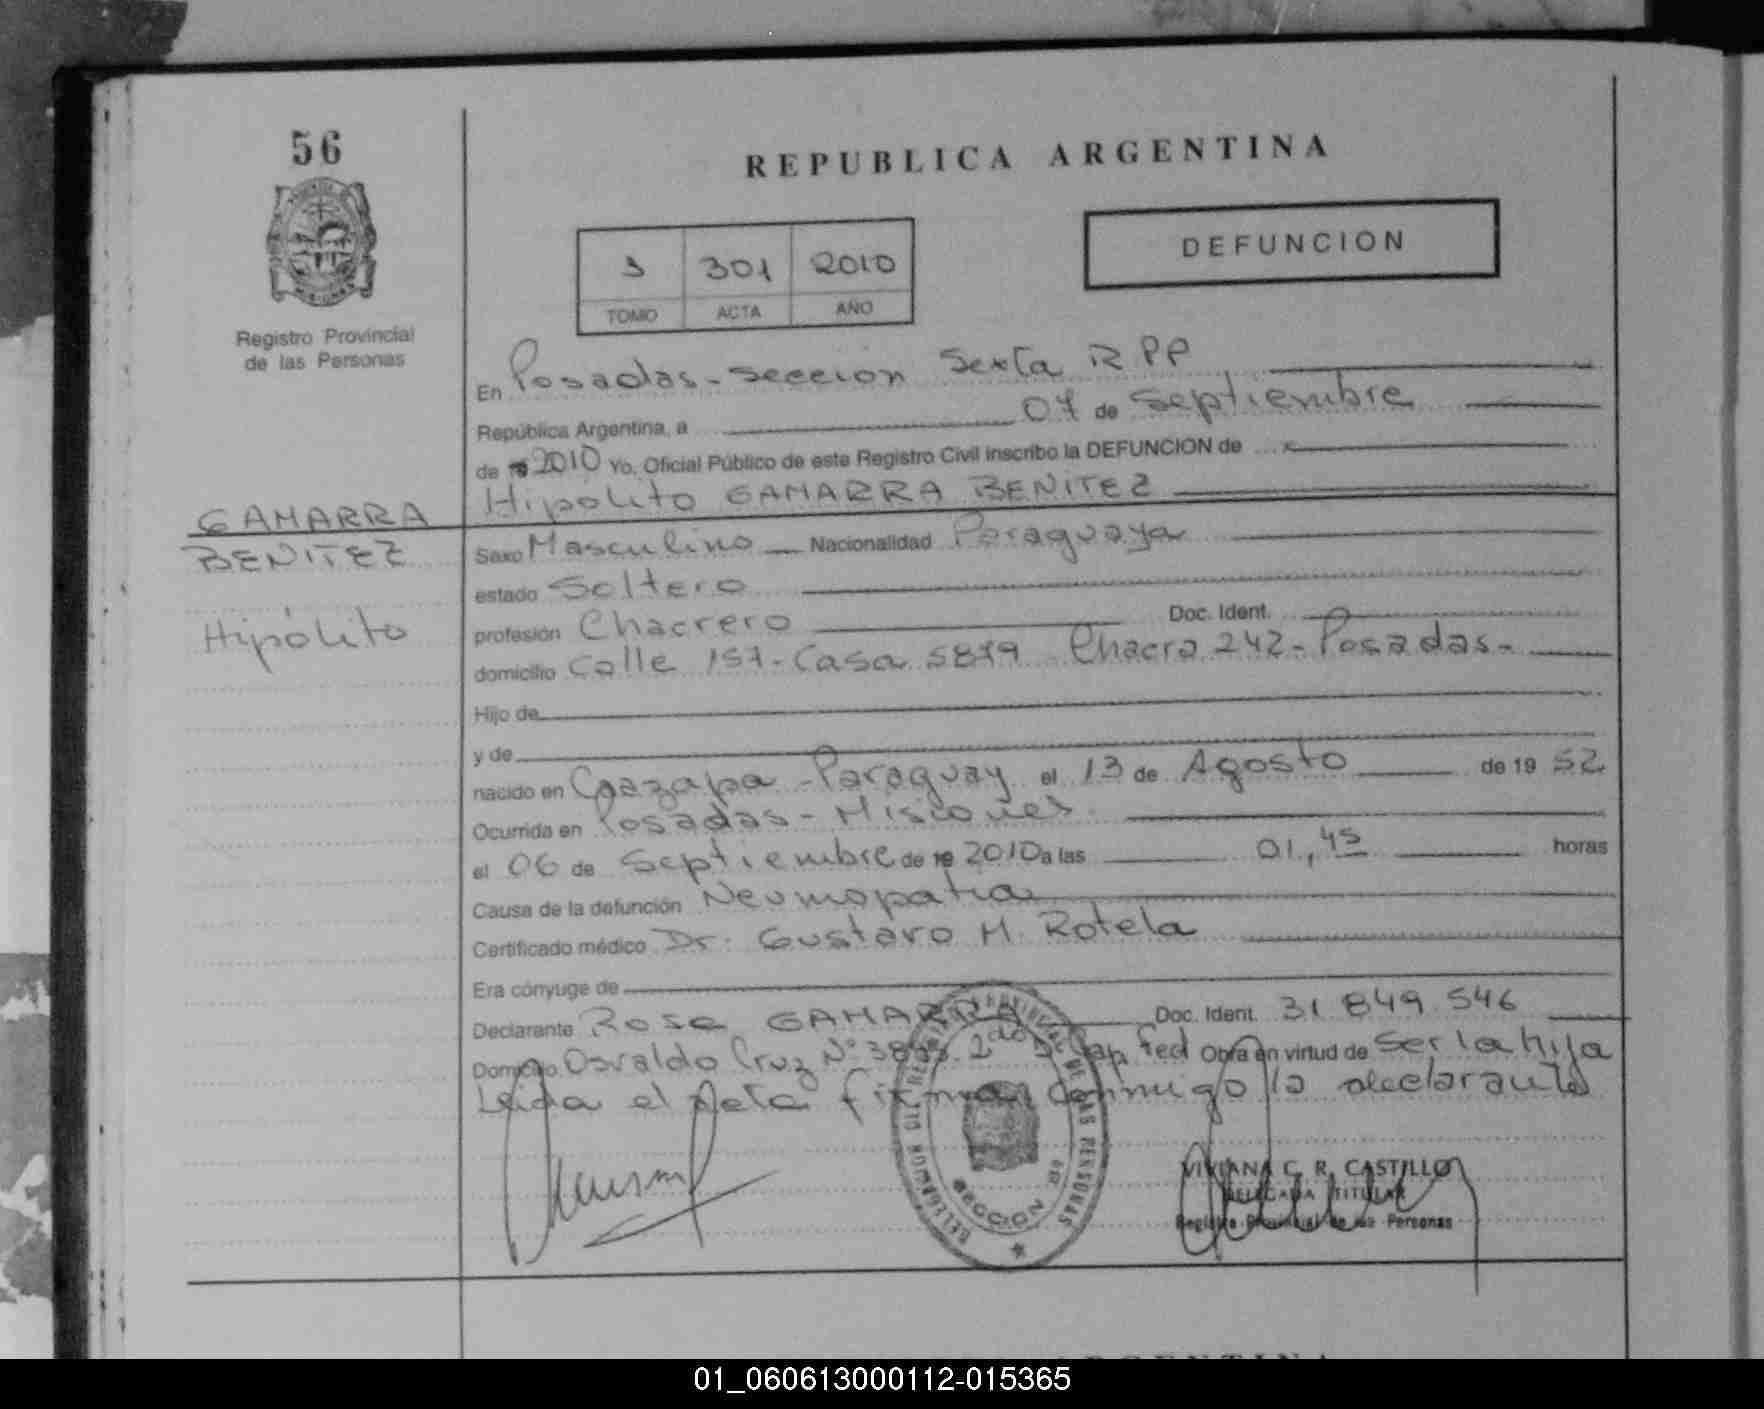 56
Registro Provincial
de las Personas
REPUBLICA ARGENTINA
3 301 2010
TOMO ACTA AÑO
DEFUNCION
En Posadas - Seccion Sexta R PP
República Argentina, a 07 de Septiembre
de 2010 Yo, Oficial Público de este Registro Civil inscribo la DEFUNCION de
Hipolito GAMARRA BENITEZ
GAMARRA
BENITEZ
Hipólito
Sexo Masculino Nacionalidad Paraguaya
estado Soltero
profesión Chacrero Doc. Ident.
domicilio Calle 157 - Casa 5879 Chacra 242 - Posadas -
Hijo de
y de
nacido en Caazapa - Paraguay el 13 de Agosto de 19 52
Ocurrida en Posadas - Misiones
el 06 de Septiembre de 2010 a las 01,45 horas
Causa de la defunción Neumopatia
Certificado médico Dr. Gustavo M. Rotela
Era cónyuge de
Declarante Rosa GAMARRA Doc. Ident. 31 849 546
Domicilio Osvaldo Cruz Nº Cap Fed Obra en virtud de Ser la hija
Leida el Acta firma conmigo la declarante
VIVIANA C. R. CASTILLO
DELEGADA TITULAR
Registro Provincial de las Personas
SECCION
DE LAS PERSONAS
01_060613000112-015365